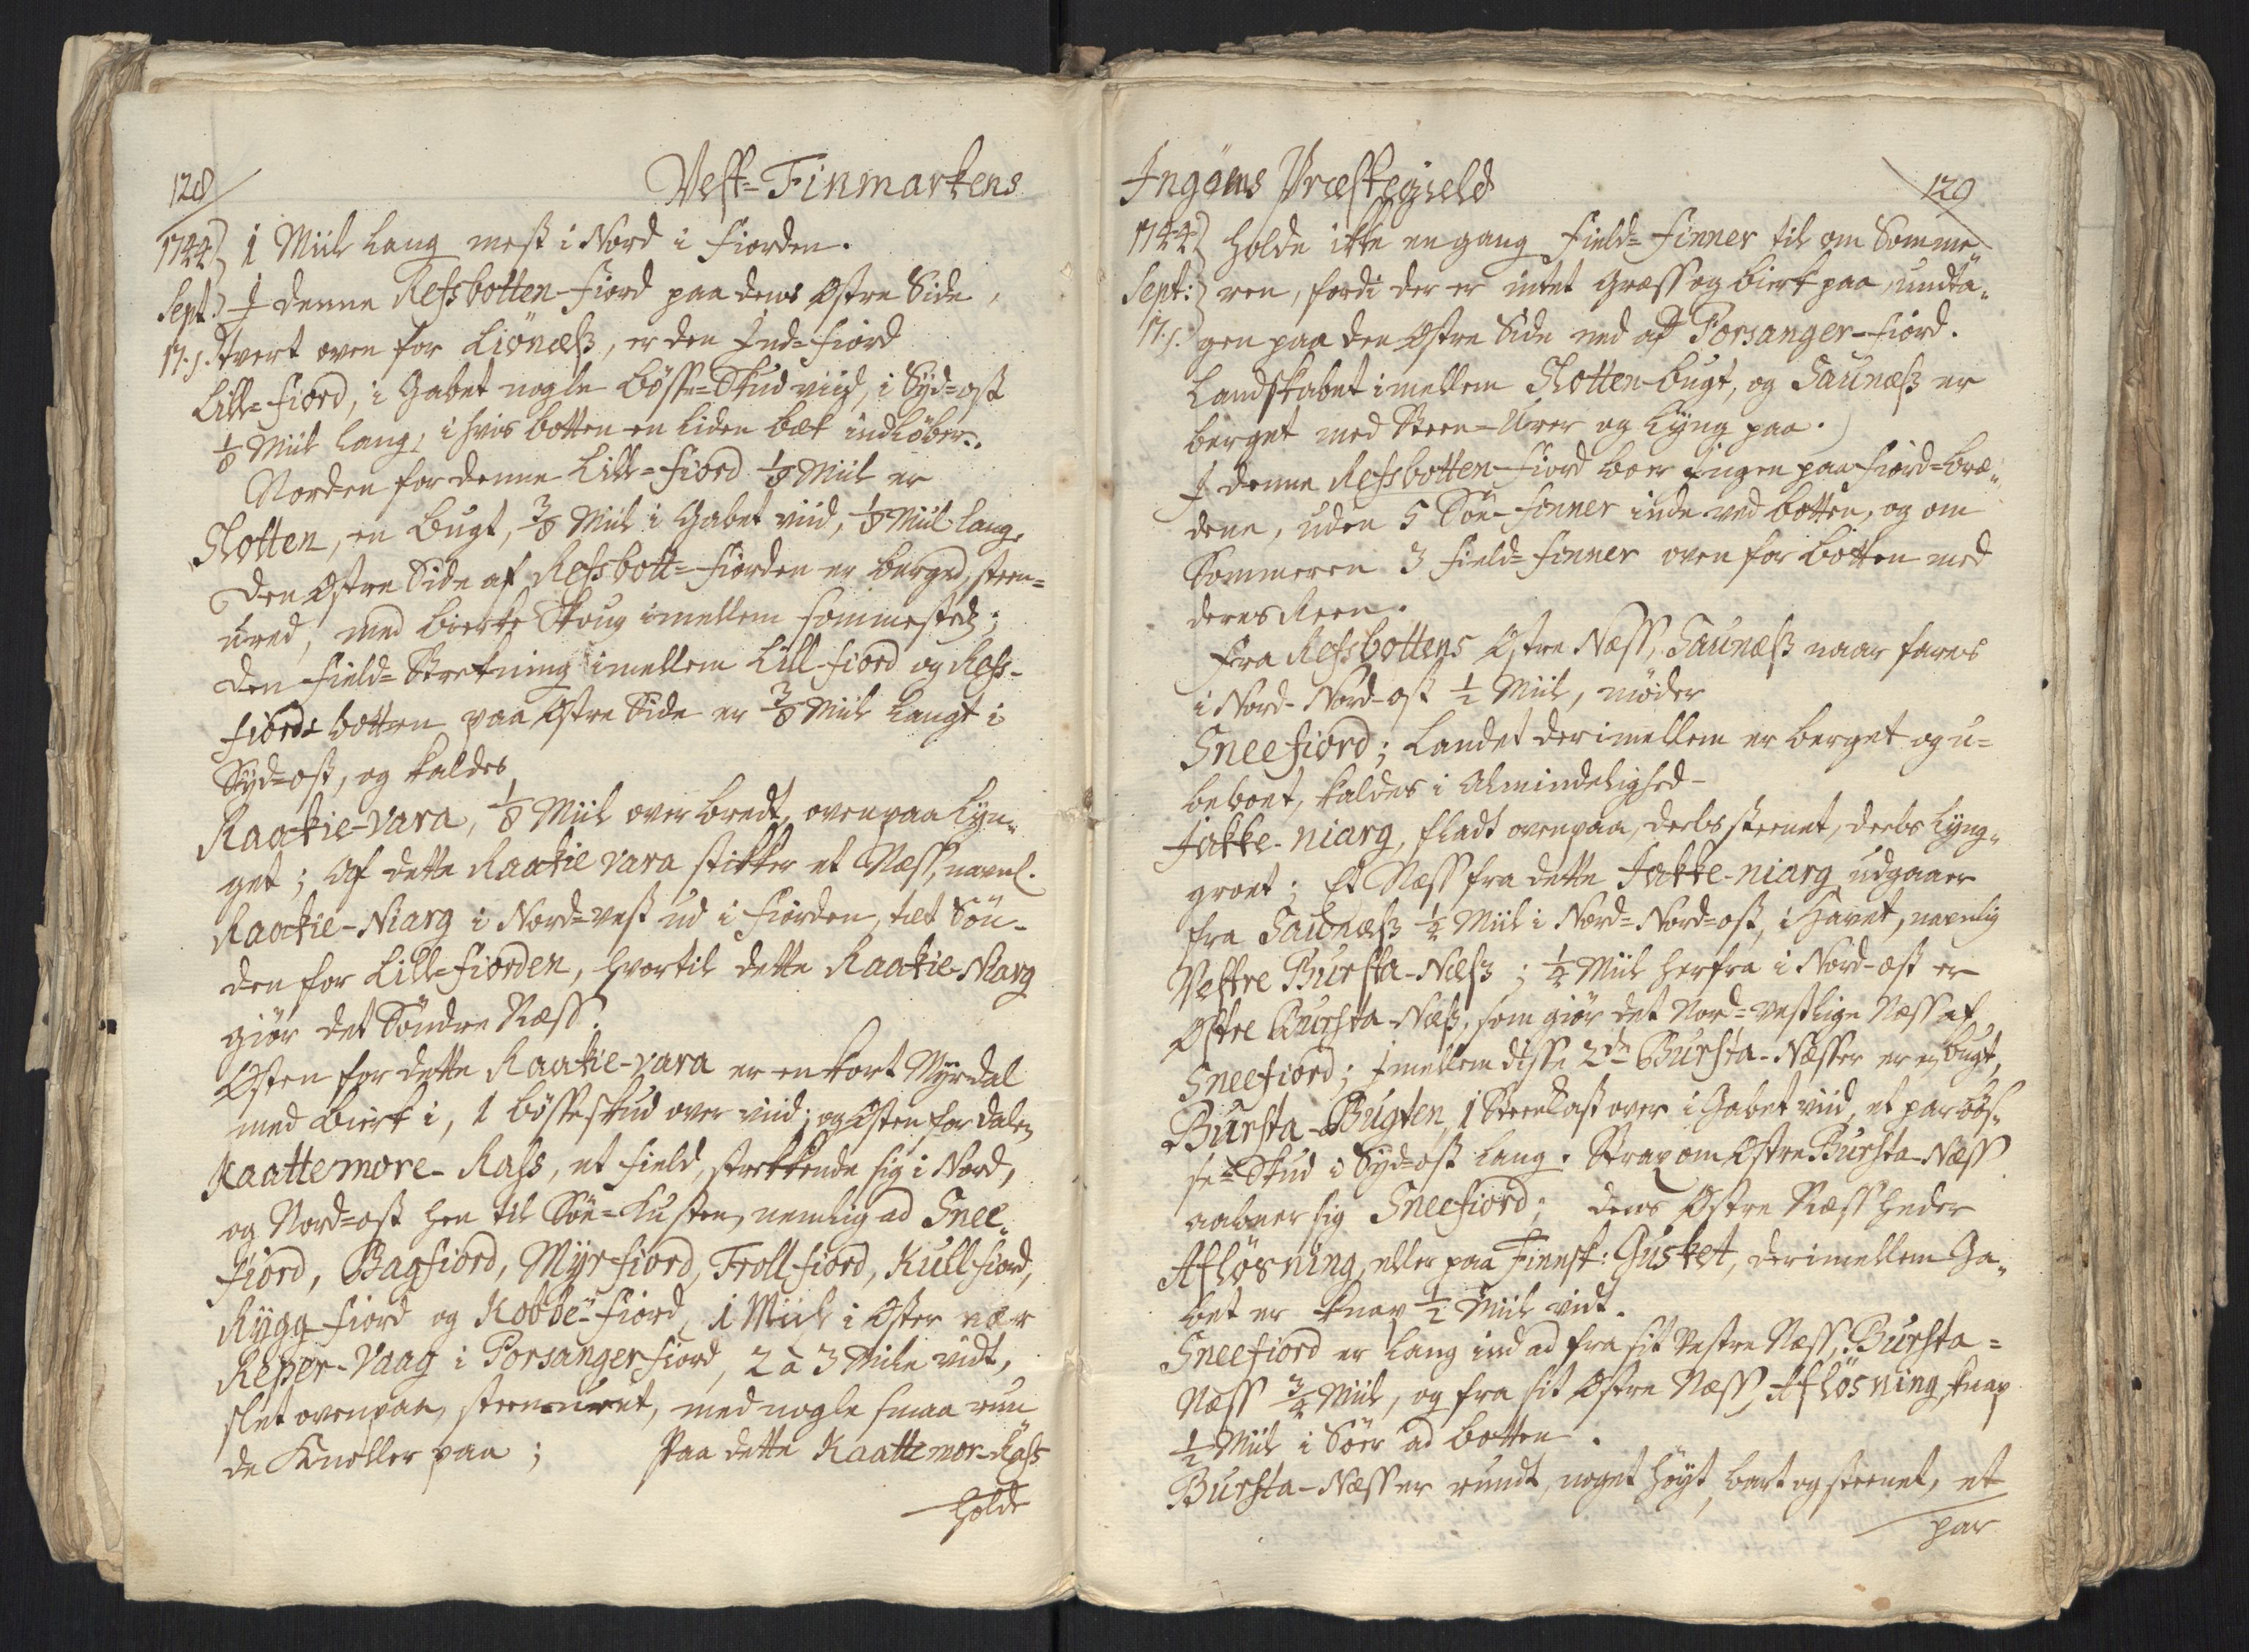 128
Vest-Finmarkens
1744) 1 Miil lang mest i Nord i fiorden.
Sept:) I denne Refsbotten-fiord paa dens Østre Side,
17.s. tvert oven for Liönæss, er den Ind-fiord
Lille-fiord, i Gabet nogle bösse-Skud viid, i Syd-ost
1/8 Miil lang, i hvis botten en liden bæk indlöber.
Norden for denne Lille-fiord 1/8 Miil er
Slotten, en bugt, 3/8 Miil i Gabet viid, 1/8 Miil lang.
Den Østre Side af Refsbott-fiorden er berged, steen-
ured, med birke Skoug imellem sommesteds;
Den field-Strekning imellem Lill-fiord og Refs-
fiords botten paa Østre Side er 3/8 Miil langt i
Syd-ost, og kaldes
Raakie-vara, 1/8 Miil over bredt, ovenpaa lyn-
get; Af dette Raakie vara stikker et Næss, navnl.
Raakie-Niarg i Nord-vest ud i fiorden, tæt Søn-
den for Lille-fiorden, hvortil dette Raakie-Niarg
giör det Søndre Næss.
Østen for dette Raakie-vara er en kort Myrdal
med birk i, 1 bösseskud over viid; og Østen for dalen
Kaattemore-Rass, et field, strekkende sig i Nord,
og Nord-ost hen til Söe-kusten, nemlig ad Snee-
fiord, Bagfiord, Myrfiord, Trollfiord, Kullfiord,
Rygg fiord og Kobbe-fiord, 1 Miil i Øster nær
Repper-Vaag i Porsangerfiord, 2 à 3 Mile vidt,
slet ovenpaa, steenuret, med nogle smaa run
de Knolle paa; Paa dette Kaattemor-Rass
holde
Ingöens Præstegield
129
1744) holde ikke en gang field-finner til om Somme-
Sept:) ren, fordi der er intet Græss og birk paa, undta-
17.s. gen paa den Østre Side ned ad Porsanger-fiord.
Landskabet imellem Slotten-bugt, og Saunæss er
berget med Steen-Urer og Lyng paa.
I denne Refsbotten-fiord boer Ingen paa fiord-bræ-
dene, uden 5 Söe-finner inde ved botten, og om
Sommeren 3 field-finner oven for botten med
deres Reen.
Fra Refsbottens Østre Næss, Saunæss naar fares
i Nord-Nord-ost 1/2 Miil, möder
Sneefiord; Landet derimellem er berget og u-
beboet, kaldes i Almindelighed
Jakke-niarg, fladt ovenpaa, deels steenet, deels lyng-
groet; Et Næss fra dette Jakke-niarg udgaaer
fra Saunæss 1/4 Miil i Nord-Nord-ost, i Havet, navnlig
Vestre Bursta-Næss; 1/4 Miil herfra i Nord-ost er
Østre Bursta-Næss, som giör det Nord-vestlige Næss af
Sneefiord; Imellem disse 2de Bursta-Næsser er en bugt,
Bursta-Bugten, 1 Steenkast over i Gabet viid, et par bös-
se-Skud i Syd-ost lang. Strax om Østre Bursta-Næss
aabner sig Sneefiord; dens Østre Næss heder
Aflösning, eller paa Finnsk: Gusket, derimellem Ga-
bet er knap 1/2 Miil vidt.
Sneefiord er lang ind ad fra sit Vestre Næss, Bursta-
Næss 3/4 Miil, og fra sit Østre Næss, Aflösning, knap
1/2 Miil i Sör ad botten.
Bursta-Næss er rundt, noget höyt, bart og steenet, et
par